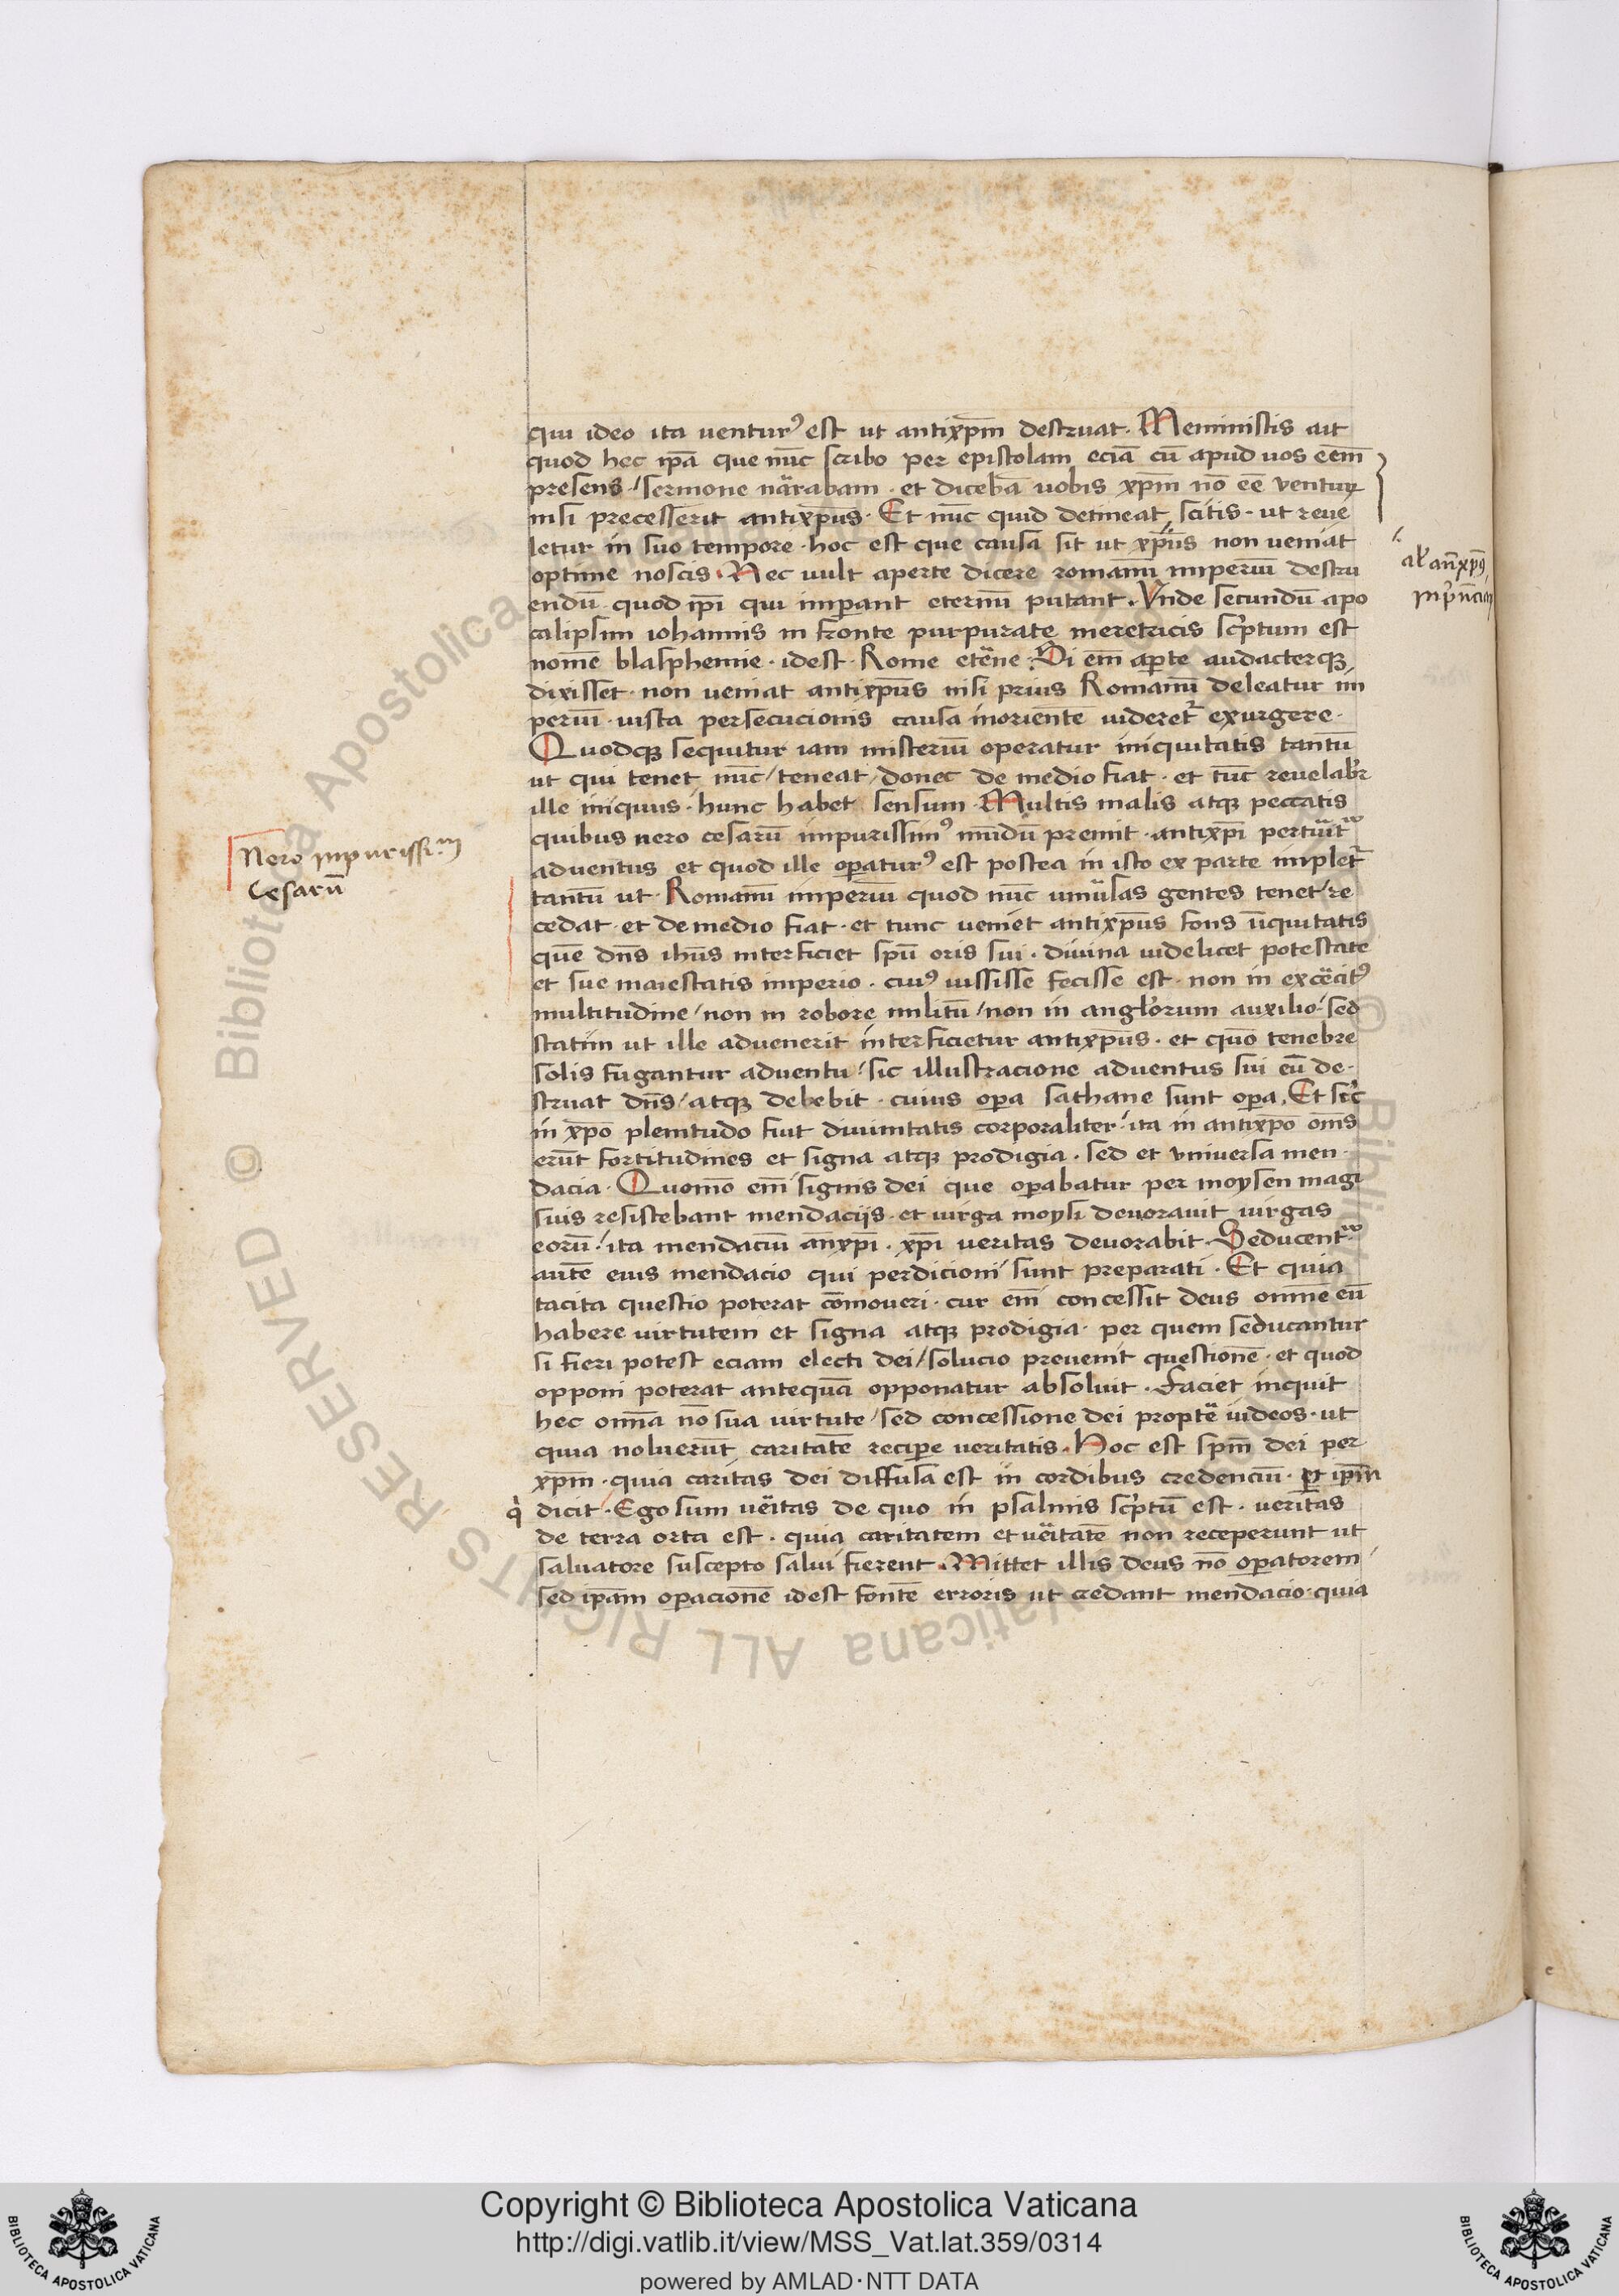 qui ideo ita ventur⁹ est ut antix̅p̅m destruat. Meministis ait
quod hec ip̅a que nu̅c scribo per epistolam ecia̅ cu̅ apud uos ee̅m
presens / sermone na̅rabam . et diceba̅ uobis xp̅m no̅ ee̅ ventuꝝ
nisi precesserit antixp̅us . Et nu̅c quid detineat scitis . ut reue
letur in suo tempore . hoc est que causa sit ut xp̅us non ueniat
optime noscis . Nec uult aperte dicere romanu̅ imperiu̅ destru
endu̅ quod ip̅i qui imp̲erant eternu̅ putant . Vnde secundu̅ apo
calipsim iohannis in fronte purpurate meretricis sc̅ptum est
nome̅ blasphemie . idest . Rome ete̅ne . Si em̅ ap̲te audacterqꝫ
dixisset . non ueniat antixp̅us nisi prius Romanu̅ deleatur im
periu̅ . iusta persecucionis causa inoriente̅ uideret̅ exurgere .
Quodqꝫ sequitur iam misteriu̅ operatur iniquitatis tantu̅
ut qui tenet nu̅c / teneat / donec de medio fiat . et tu̅c reuelabr̅
ille iniquus . hunc habet sensum . Multis malis atqꝫ peccatis
quibus nero cesaru̅ impurissim⁹ mu̅du̅ premit . antixp̅i perturit̅
aduentus et quod ille op̲atur⁹ est postea in isto ex parte implet̅
tantu̅ ut Romanu̅ imperiu̅ quod nu̅c uniu̅sas gentes tenet / re
cedat . et de medio fiat . et tunc ueniet antixp̅us fons i̅iquitatis
que̅ dn̅s ih̅us interficiet sp̅u oris sui . diuina uidelicet potestate
et sue maiestatis imperio . cui⁹ iussisse fecisse est . non in exe̅cit⁹
multitudine / non in robore militu̅ / non in angl̅orum auxilio / sed
statim ut ille aduenerit interficietur antixp̅us . et quo̅ tenebre
solis fugantur aduentu / sic illustracione aduentus sui eu̅ de-
struat dn̅s / atqꝫ delebit . cuius op̲a sathane sunt op̲a . Et sic̅
in xp̅o plenitudo fuit diuinitatis corporaliter / ita in antixp̅o om̅s
eru̅t fortitudines et signa atqꝫ prodigia . sed et vniuersa men-
dacia . Quomo̅ em̅ signis dei que op̲abatur per moysen magi
suis resistebant mendaciis . et uirga moysi deuorauit uirgas
eoru̅ / ita mendaciu̅ an̅xp̅i . xp̅i ueritas deuorabit . Seducent̅
aute̅ eius mendacio qui perdicioni sunt preparati . Et quia
tacita questio poterat co̅moueri . cur em̅ concessit deus omne̅ eu̅
habere uirtutem et signa atqꝫ prodigia . per quem seducantur
si fieri potest eciam electi dei / solucio preuenit questione̅ . et quod
opponi poterat antequa̅ opponatur absoluit . Faciet inquit
hec om̅a no̅ sua uirtute / sed concessione dei propte̅ iudeos . ut
quia noluerunt caritate̅ recip̲e ueritatis . Hoc est sp̅m dei per
xp̅m . quia caritas dei diffusa est in cordibus credenciu̅ . et ip̅m
q̇ dicit . Ego sum ue̅itas de quo in psalmis sc̅ptu̅ est . ueritas
de terra orta est . quia caritatem et ue̅itate̅ non receperunt ut
saluatore suscepto salui fierent . Mittet illis deus no̅ op̲atorem
sed ip̅am op̲acione̅ idest fonte̅ erroris ut c̅edant mendacio . quia
al̅ an̅xp̅⁹
Nero impurissi.m
Cesaru̅
Copyright © Biblioteca Apostolica Vaticana
http://digi.vatlib.it/view/MSS_Vat.lat.359/0314
powered by AMLAD·NTT DATA
BIBLIOTECA APOSTOLICA VATICANA
BIBLIOTECA APOSTOLICA VATICANA
© Biblioteca Apostolica Vaticana ALL RIGHTS RESERVED